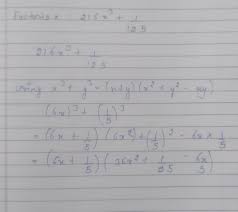 Factorise : 216x³ + 1/125
216x³ + 1/125
using x³ + y³ = (x+y)(x² + y² - xy)
(6x)³ + (1/5)³
= (6x + 1/5) (6x²) + (1/5)² - 6x × 1/5
= (6x + 1/5) (36x² + 1/25 - 6x/5)